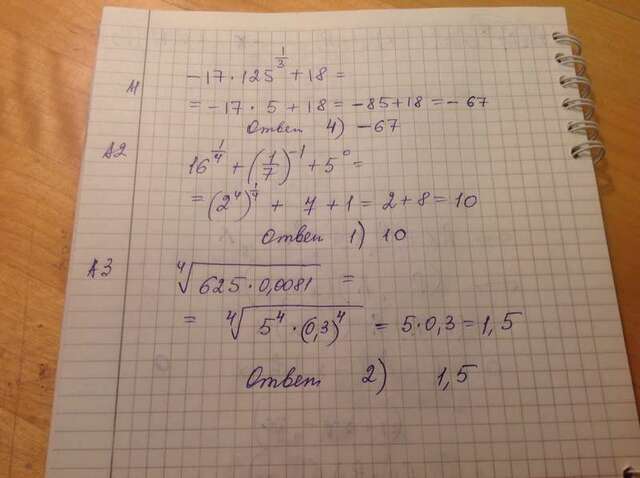 А1 -17·125^(1/3) + 18 =
= -17·5 + 18 = -85+18 = -67
Ответ 4) -67
А2 16^(1/4) + (1/7)^(-1) + 5^0 =
= (2^4)^(1/4) + 7 + 1 = 2 + 8 = 10
Ответ 1) 10
А3 ⁴√(625·0,0081) =
= ⁴√(5^4·(0,3)^4) = 5·0,3 = 1,5
Ответ 2) 1,5